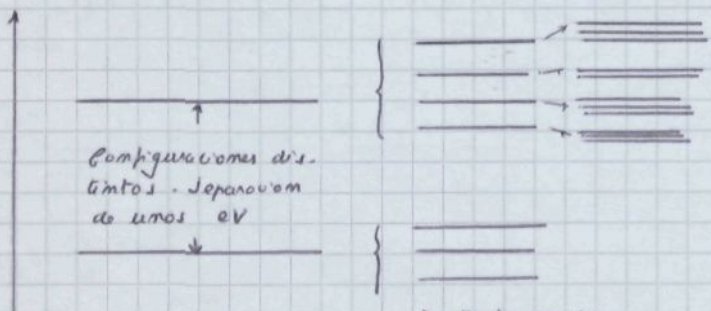 Configuraciones dis-
tintos. Separacion
de unos eV